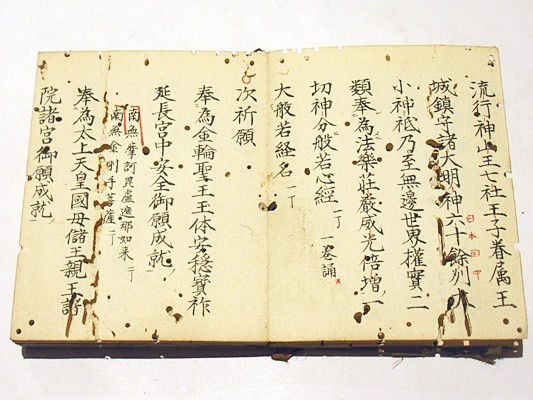 流行神山王七社王子眷属王
城鎮守諸大明神六十餘州大
日本国中
小神祇乃至無邊世界權實二
類奉為法樂莊嚴威光倍増一
切神分般若心經一丁 一巻誦
大般若経名一丁
次祈願
奉為金輪聖王玉体安穏寳祚
延長宮中安全御願成就
南無摩訶毘盧遮那如来一丁
南無金剛手菩薩一丁
奉為太上天皇國母儲王親王諸
院諸宮御願成就